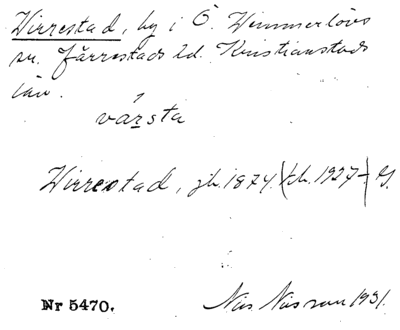 Virrestad, by i Ö. Vemmerlövs
sn. Järrestads hd. Kristianstads
län.
vársta
Virrestad, jb. 1874. kb. 1927
Nr 5470. Nils Nilsson 1931.